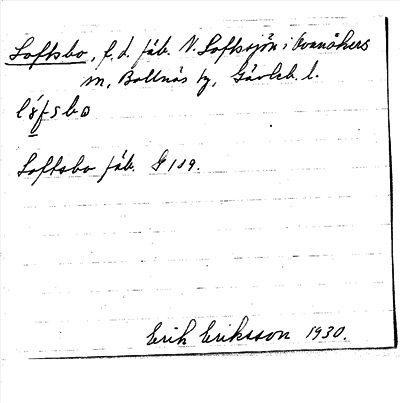 Loftsbo, f. d. fäb. V. Loftssjön i Ovanåkers
sn, Bollnäs tg, Gävleb. l.
Loftsbo fäb. G 119.
Erik Eriksson 1930.